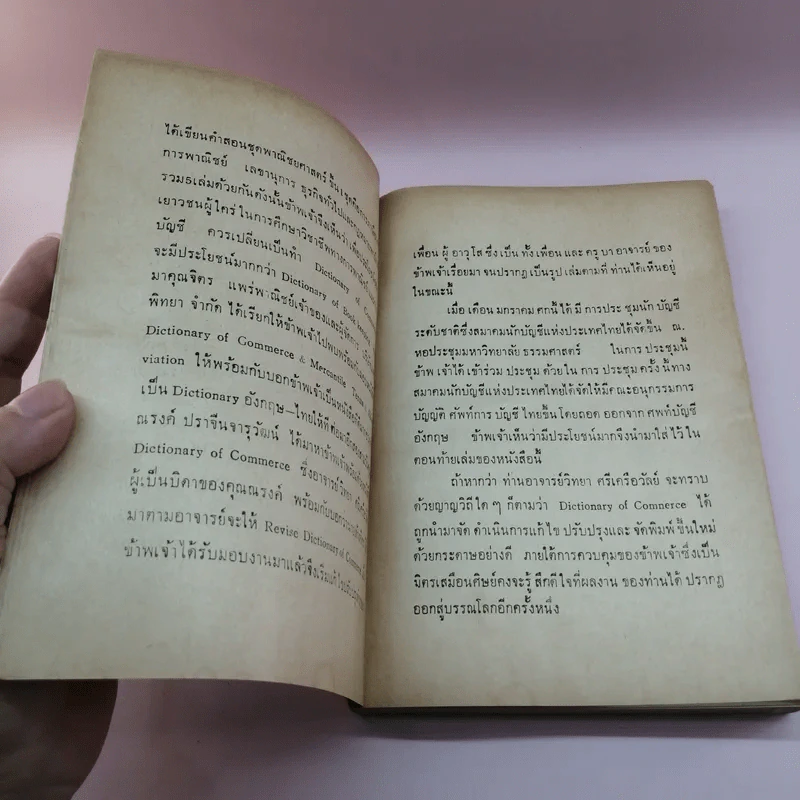 ได้เขียนคำสอนชุดพาณิชยศาสตร์ ขึ้น 1 ชุดคือ
การพาณิชย์ เลขานุการ ธุรกิจทั่วไปและ
รวม5เล่มด้วยกันดังนั้นข้าพเจ้าจึงเห็นว่า
เยาวชนผู้ใคร่ ในการศึกษาวิชาชีพทางการ
บัญชี ควรเปลี่ยนเป็นทำ Dictionary of
จะมีประโยชน์มากกว่า Dictionary of Book
มาคุณจิตร แพร่พาณิชย์เจ้าของและผู้จัดการ
พิทยา จำกัด ได้เรียกให้ข้าพเจ้าไปพบพร้อม
Dictionary of Commerce & Mercantile
viation ให้พร้อมกับบอกข้าพเจ้าเป็น
เป็น Dictionary อังกฤษ—ไทยให้ที
ณรงค์ ปราจีนจารุวัฒน์ ได้มาหาข้าพเจ้า
Dictionary of Commerce ซึ่งอาจารย์วิทยา
ผู้เป็นบิดาของคุณณรงค์ พร้อมกับบอก
มาตามอาจารย์จะให้ Revise Dictionary of Commerce
ข้าพเจ้าได้รับมอบงานมาแล้วจึงเริ่มแก้ไข
เพื่อน ผู้ อาวุโส ซึ่ง เป็น ทั้ง เพื่อน และ ครู บา อาจารย์ ของ
ข้าพเจ้าเรื่อยมา จนปรากฏ เป็นรูป เล่มตามที่ ท่านได้เห็นอยู่
ในขณะนี้
เมื่อ เดือน มกราคม ศกนี้ ได้ มี การประ ชุมนัก บัญชี
ระดับชาติซึ่งสมาคมนักบัญชีแห่งประเทศไทยได้จัดขึ้น ณ.
หอประชุมมหาวิทยาลัย ธรรมศาสตร์ ในการ ประชุมนี้
ข้าพ เจ้าได้ เข้าร่วม ประชุม ด้วยใน การ ประชุม ครั้ง นี้ ทาง
สมาคมนักบัญชีแห่งประเทศไทยได้จัดให้มีคณะอนุกรรมการ
บัญญัติ ศัพท์การ บัญชี ไทยขึ้น โดยถอด ออกจาก ศพท์บัญชี
อังกฤษ ข้าพเจ้าเห็นว่ามีประโยชน์มากจึงนำมาใส่ ไว้ ใน
ตอนท้ายเล่มของหนังสือนี้
ถ้าหากว่า ท่านอาจารย์วิทยา ศรีเครือวัลย์ จะทราบ
ด้วยญาญวิถีใด ๆ ก็ตามว่า Dictionary of Commerce ได้
ถูกนำมาจัด ดำเนินการแก้ไข ปรับปรุงและ จัดพิมพ์ ขึ้นใหม่
ด้วยกระดาษอย่างดี ภายใต้การควบคุมของข้าพเจ้าซึ่งเป็น
มิตรเสมือนศิษย์คงจะรู้ สึกดีใจที่ผลงาน ของท่านได้ ปรากฏ
ออกสู่บรรณโลกอีกครั้งหนึ่ง